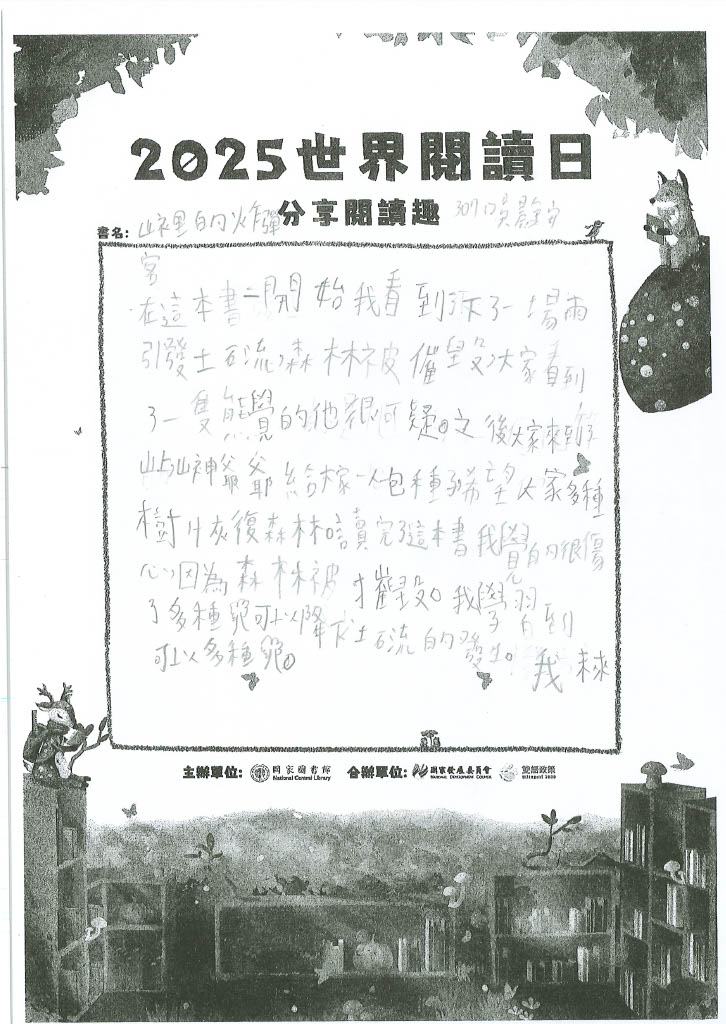 2025世界閱讀日
分享閱讀趣
書名: 山裡的炸彈 307吳靜安
客
在這本書一開始我看到涿了一場雨
引發土石流森林被催毀大家看到
了一隻熊覺的他很可疑。之後大家來到
山山神爺爺給大家一人一包種子希望大家多種
樹恢復森林讀完這本書我覺的很傷
心因為森林被摧毀。我學習到
了多種樹可以降低土石流的發生。我
可以多種樹。
主辦單位: 國家圖書館 National Central Library 合辦單位: 國家發展委員會 NATIONAL DEVELOPMENT COUNCIL 雙語政策 Bilingual 2030